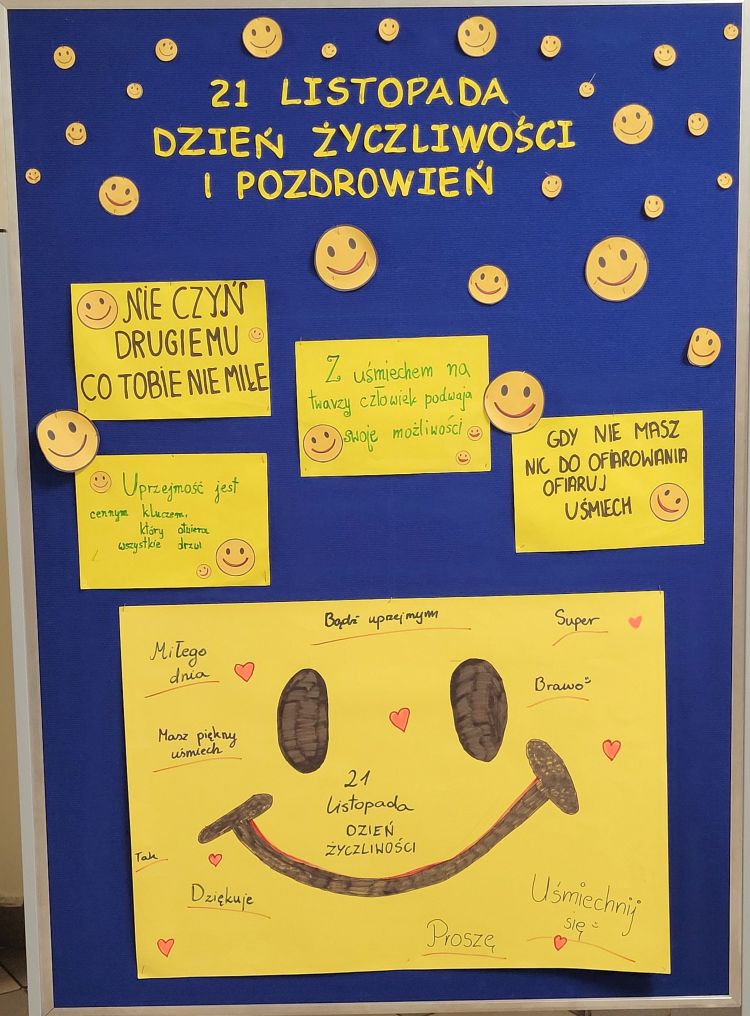 21 LISTOPADA
DZIEŃ ŻYCZLIWOŚCI
I POZDROWIEŃ
NIE CZYŃ
DRUGIEMU
CO TOBIE NIE MIŁE
Z uśmiechem na
twarzy człowiek podwaja
swoje możliwości
GDY NIE MASZ
NIC DO OFIAROWANIA
OFIARUJ
UŚMIECH
Uprzejmość jest
cennym kluczem,
który otwiera
wszystkie drzwi
Bądź uprzejmym
Super
Miłego
dnia
Brawo
Masz piękny
uśmiech
21
listopada
DZIEŃ
ŻYCZLIWOŚCI
Tak
Dziękuje
Uśmiechnij
się
Proszę